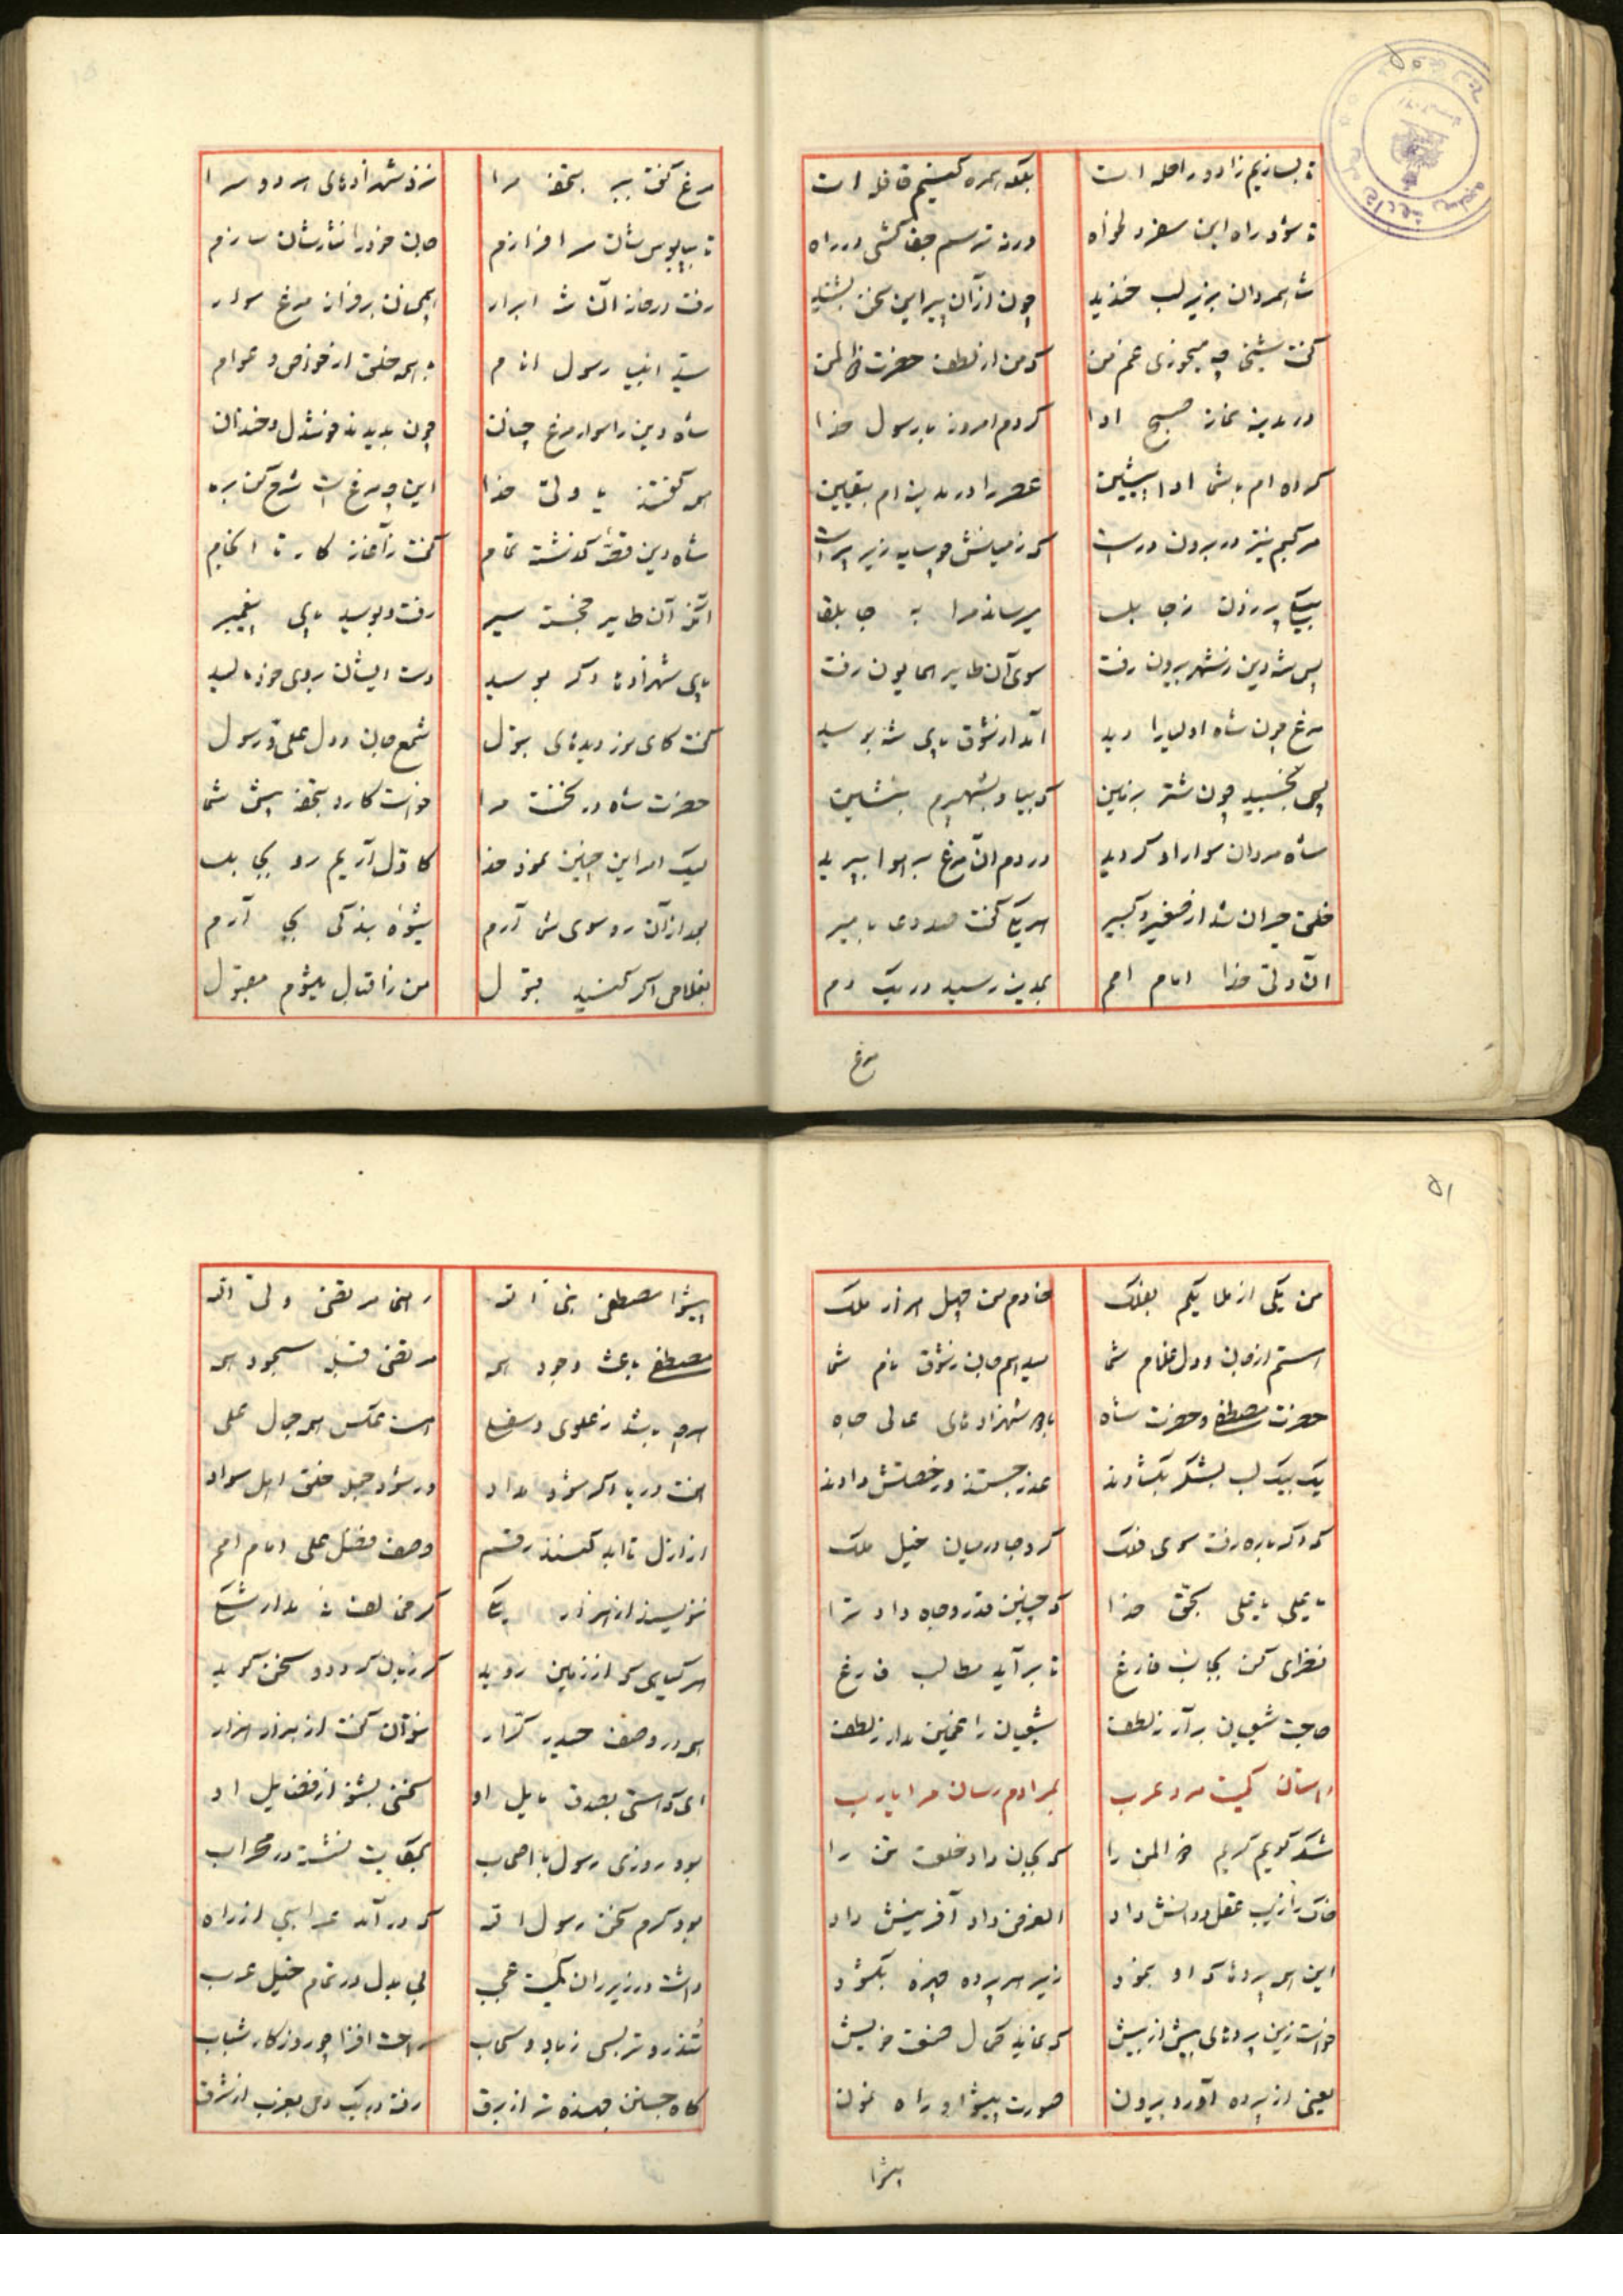 تا بسازیم زاد و راحله است بلکه همره کنیم قافله است
تا شود راه این سفر دلخواه ورنه ترسم جفا کشی در راه
شاه مردان بزیر لب خندید چون از آن پیر این سخن بشنید
گفت شیخی چه میخوری غم من که من از لطف حضرت ذالمن
در مدینه نماز صبح ادا کردم امروز با رسول خدا
کرده ام با شما ادا پیشین عصر را در مدینه ام بیقین
مرکبم نیز در برون در است که زمینش چو سایه زیر پر است
بیکی پر زدن ز جابلسا میرساند مرا به جابلقا
پس شه دین ز شهر بیرون رفت سوی آن طایر همایون رفت
مرغ چون شاه اولیا را دید آمد از شوق پای شه بوسید
پس بخسبید چون شتر بزمین که بیا و بشهپرم بنشین
شاه مردان سوار او گردید در دم آن مرغ بر هوا پرید
خلق حیران شد از صغیر و کبیر هر یکی گفت صد دعا بامیر
آن ولی خدا امام امم بمدینه رسید در یک دم
مرغ
مرغ گفت ببر بتحفه مرا نزد شهزادهای هر دو سرا
تا بپابوس شان سر افرازم جان خود را نثار شان سازم
رفت در خانه آن شه ابرار همچنان بر فراز مرغ سوار
سید انبیا رسول انام با همه خلق از خواص و عوام
شاه دین را سوار مرغ چنان چون بدیدند خوشدل و خندان
همه گفتند یا ولی خدا این چه مرغ است شرح کن بره
شاه دین قصه گذشته تمام گفت ز آغاز کار تا انجام
آنگه آن طایر خجسته سیر رفت و بوسید پای پیغمبر
پای شهزادها دگر بوسید دست ایشان بروی خود مالید
گفت کای نور دیدهای بتول شمع جان و دل علی و رسول
حضرت شاه در نخست مرا خواست کارد بتحفه پیش شما
لیک امر این چنین نمود خدا کاول آریم رو بجابلسا
بعد از آن رو سوی شما آرم شیوه بندگی بجا آرم
بغلامی اگر کنید قبول من ز اقبال میشوم مقبول
۵۱
من یکی از ملایکم بفلک خادم من چهل هزار ملک
هستم از جان و دل غلام شما میدهم جان ز شوق نام شما
حضرت مصطفی و حضرت شاه با شهزادهای عالی جاه
یک بیک لب بشکر بگشادند عذر جستند و رخصتش دادند
کرد دگر باره رفت سوی فلک کرد جا در میان خیل ملک
یا علی یا علی بحق خدا که چنین قدر و جاه داد ترا
نظری کن بجانب فارغ تا برآید مطالب فارغ
حاجت شیعیان برآر ز لطف شیعیان را غمین مدار ز لطف
داستان کمیت مرد عرب بمرادم رسان مرا یارب
شکر گویم کریم ذوالمن را که بجان داد خلعت تن را
خاک را زیب عقل و دانش داد الغرض داد آفرینش داد
این همه پردها که او بنمود زیر هر پرده چهره بگشود
خواست زین پردهای بیش از پیش که نماید کمال صنعت خویش
یعنی از پرده آورد بیرون صورت پیشوا و راه نمون
پیشوا
پیشوا مصطفی نبی الله رهنما مرتضی ولی الله
مصطفی باعث وجود همه مرتضی قبله سجود همه
هرچه باشد ز علوی و سفلی هست عکس همه جمال علی
هفت دریا اگر شود مداد ور شود جمله خلق اهل سواد
از ازل تا ابد کنند رقم وصف فضل علی امام امم
ننویسند از هزار یکی
هر گیاهی که از زمین روید گر زبان گردد و سخن گوید
همه در وصف حیدر کرار نتوان گفت از هزار هزار
ای که هستی بصدق مایل او سخنی بشنو از فضایل او
بود روزی رسول با اصحاب نشسته در محراب
بود گرم سخن رسول الله که درآمد عرابیی از راه
داشت در زیر ران کمیت عجب بی بدل در تمام خیل عرب
تندرو تر بسی ز باد و سحاب راحت افزا چو روزگار شباب
گاه جستن جهنده تر از برق رفته در یک دم بغرب از شرق